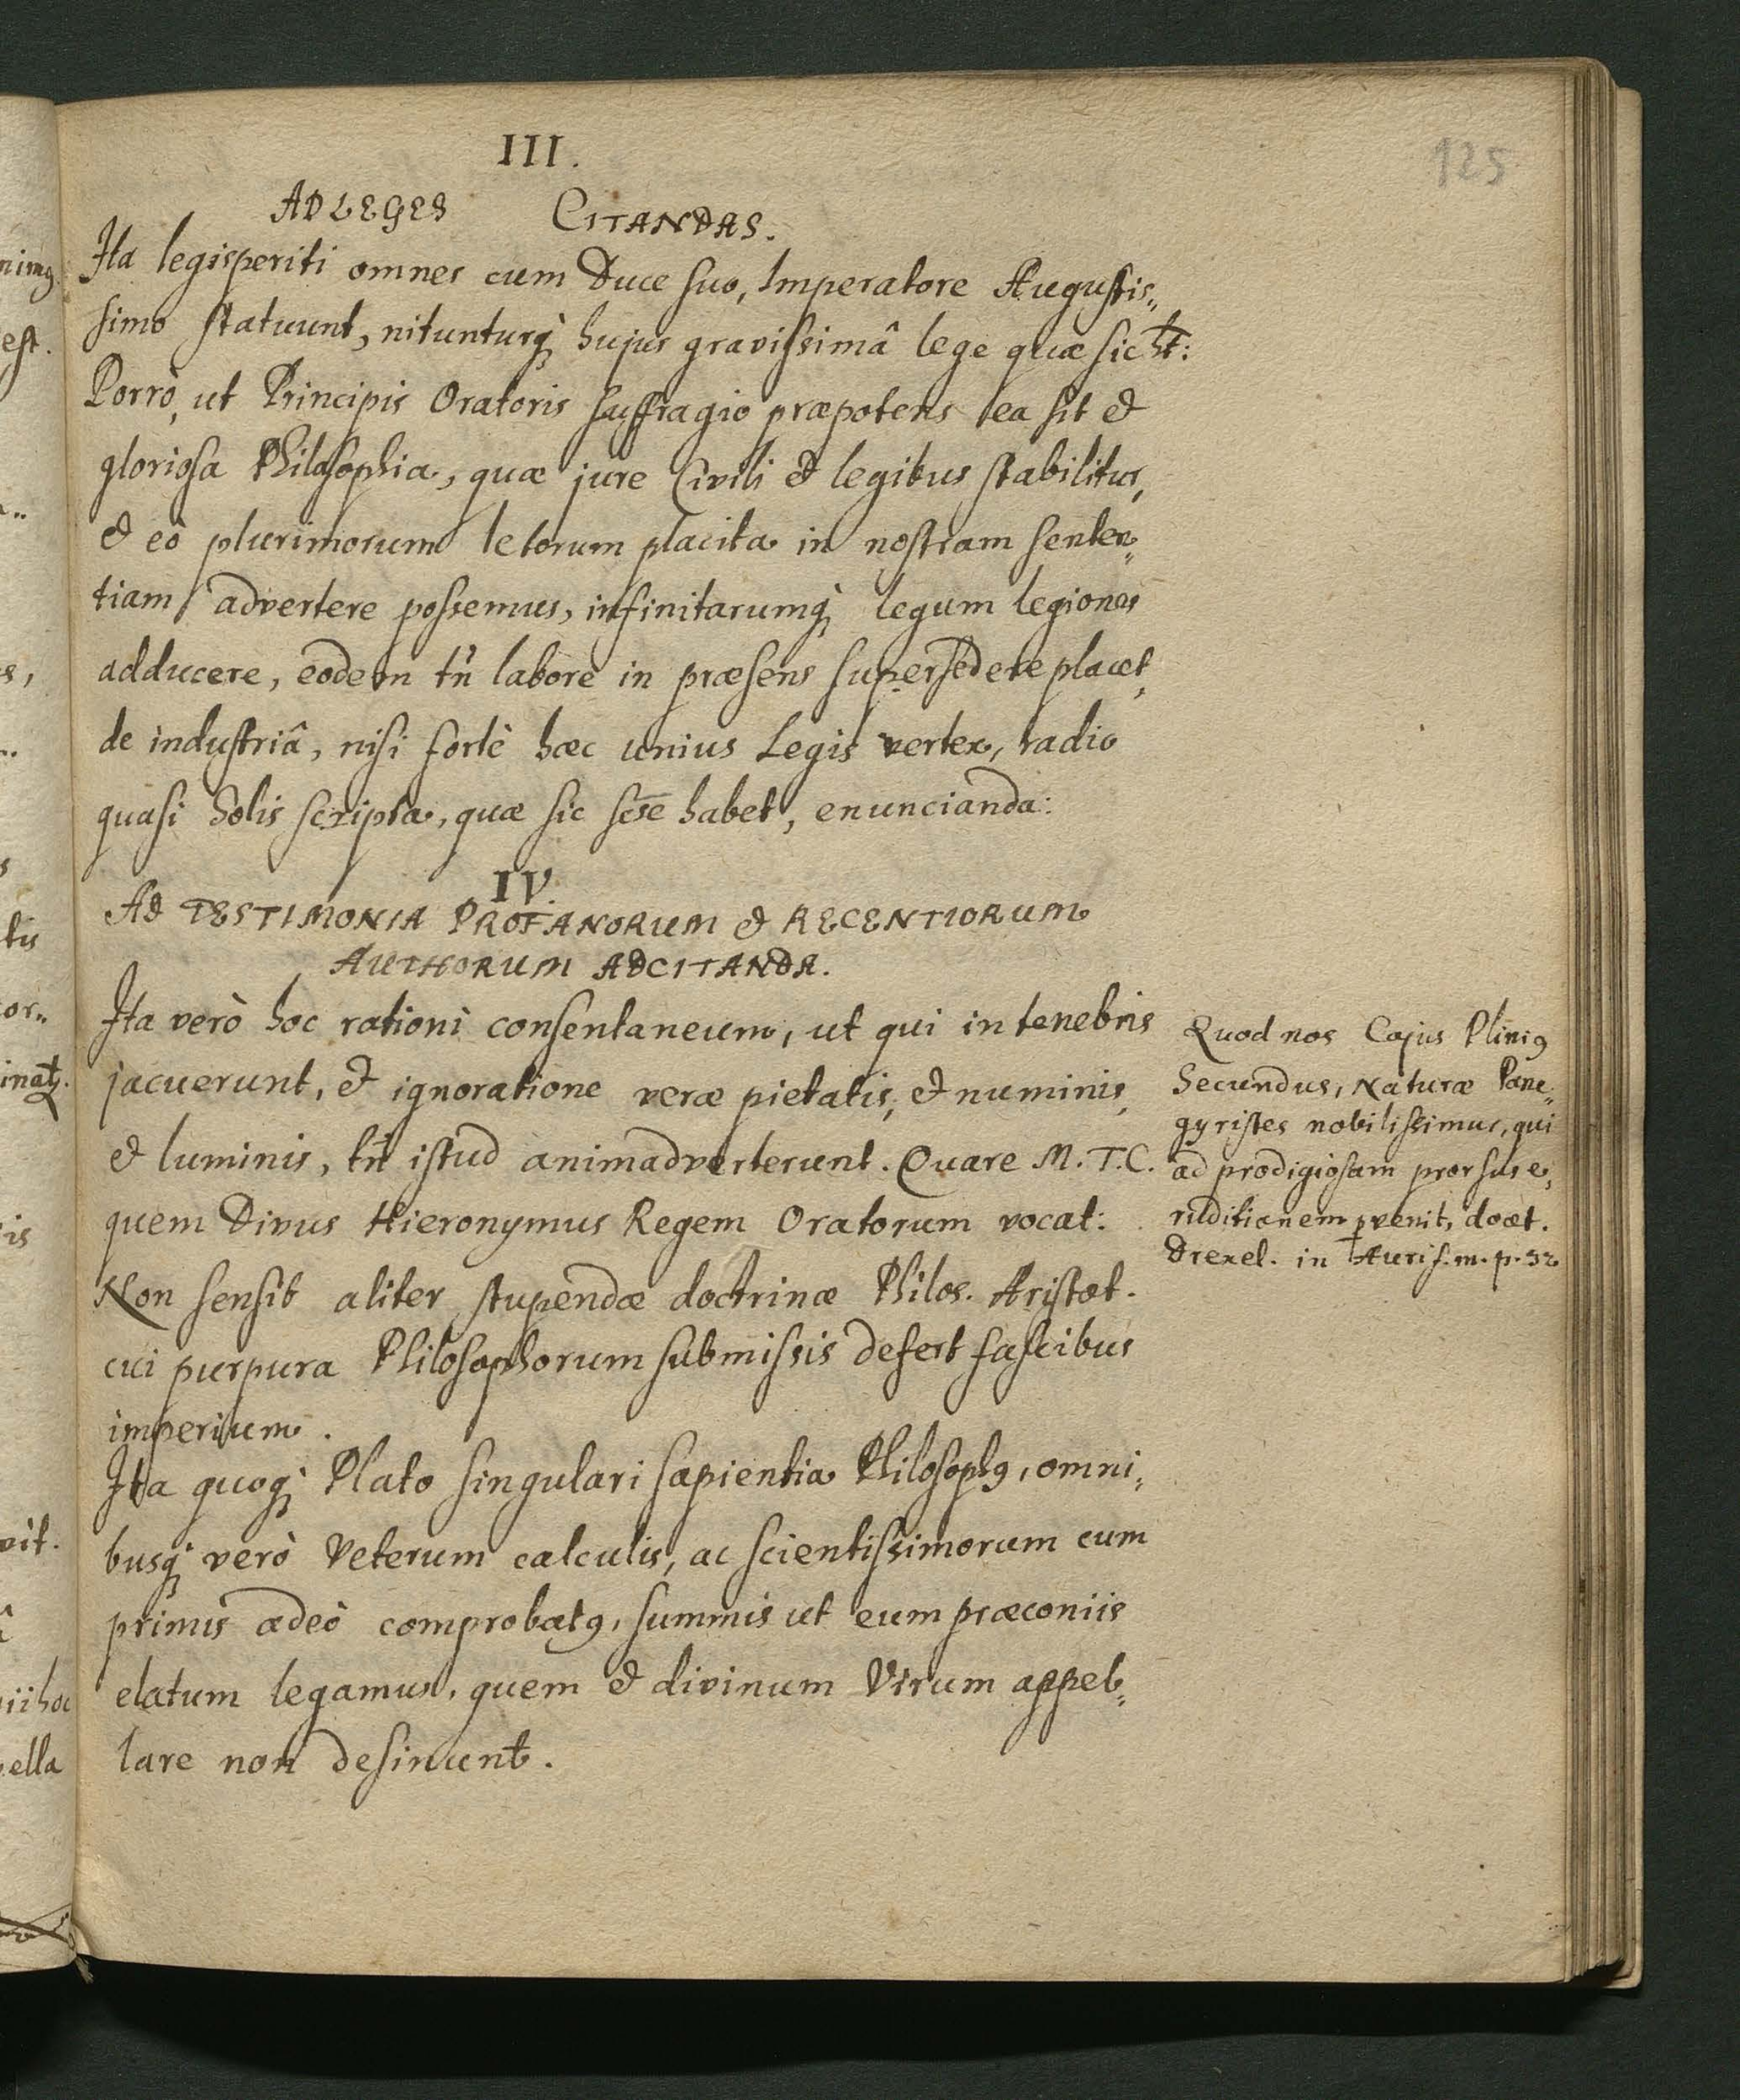 125
III.
AD LEGES CITANDAS.
Ita legisperiti omnes cum Duce suo, Imperatore Augustis„
simo statuunt, nitunturq; hujus gravissimâ lege quæ sic ht:
Porrò, ut Principis Oratoris suffragio præpotens ea sit &
gloriosa Philosophia, quæ jure Civili & legibus stabilitur,
& eò plurimorum Ictorum placita in nostram senten„
tiam advertere possemus, infinitarumq; legum legiones
adducere, eodem tn̄ labore in præsens supersedere placet,
de industriâ, nisi fortè hæc unius Legis vertex, radio
quasi Solis scripta, quæ sic sese habet, enuncianda:
IV.
AD TESTIMONIA PROFANORUM & RECENTIORUM
AUTHORUM ADCITANDA.
Ita verò hoc rationi consentaneum, ut qui in tenebris
jacuerunt, & ignoratione veræ pietatis, & numinis,
& luminis, tn̄ istud animadverterunt. Quare M. T. C.
quem Divus Hieronymus Regem Oratorum vocat:
Non sensit aliter stupendæ doctrinæ Philos. Aristot.
cui purpura Philosophorum submissis defert fascibus
imperium.
Ita quoq; Plato singulari sapientia Philosophꝯ, omni„
busq; verò Veterum calculis, ac scientissimorum cum
primis adeò comprobatꝯ, summis ut eum præconiis
elatum legamus, quem & divinum Virum appel„
lare non desinunt.
Quod nos Cajus Pliniꝯ
Secundus, Naturæ Pane„
gyristes nobilissimus, qui
ad prodigiosam prorsus e„
ruditionem ꝑvenit, docet.
Drexel. in Aurif. m. p. 32